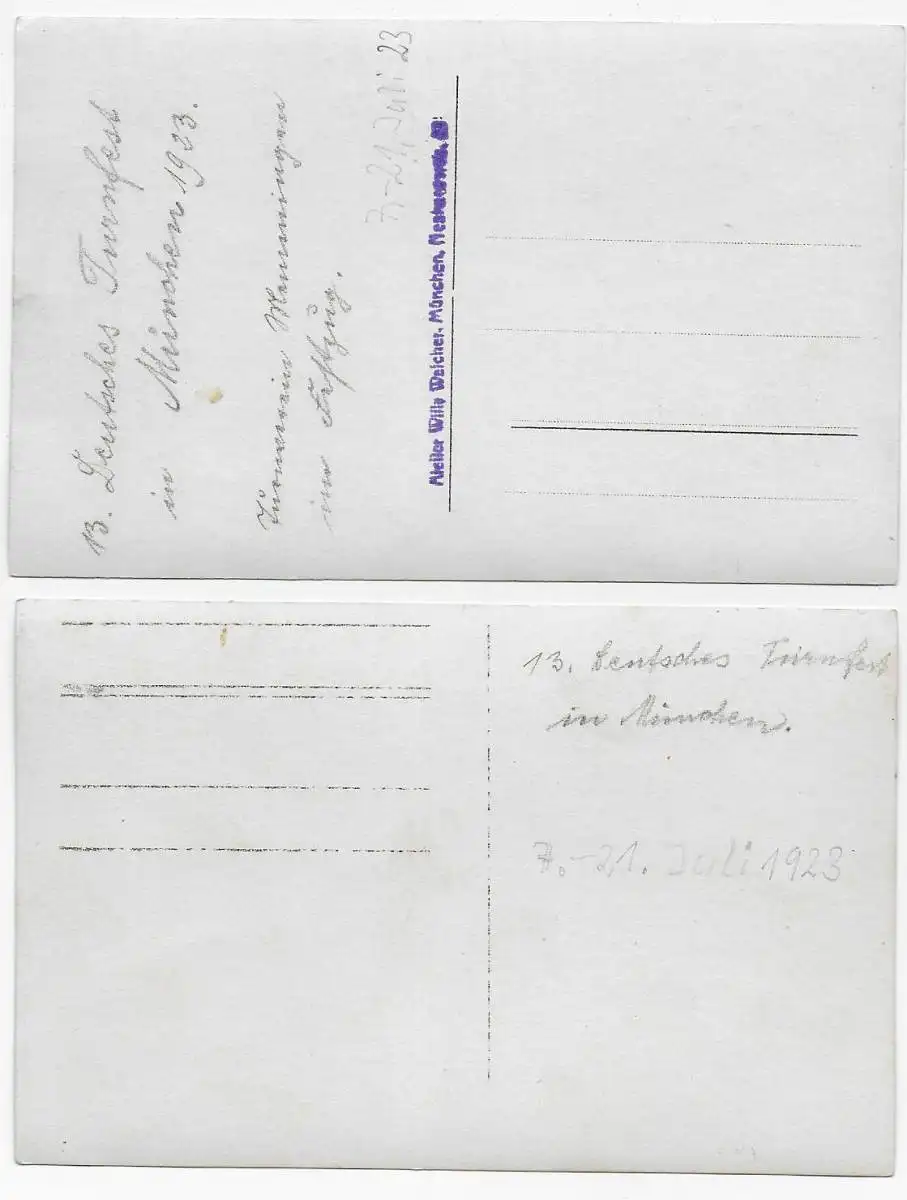 13. Deutsches Turnfest
in München 1923.
Turnverein Memmingen
im Festzug.
7.-21. Juli 23
Atelier Willy Walcher, München,
13. Deutsches Turnfest
in München.
7.-21. Juli 1923